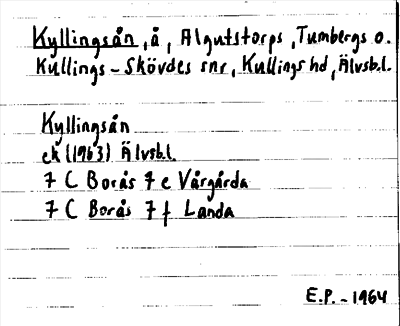 Kyllingsån, å, Algutstorps, Tumbergs o.
Kullings-Skövdes snr, Kullings hd, Älvsb.l.
Kyllingsån
ek (1963) Älvsb.l.
7 C Borås 7 e Vårgårda
7 C Borås 7 f Landa
E.P. - 1964